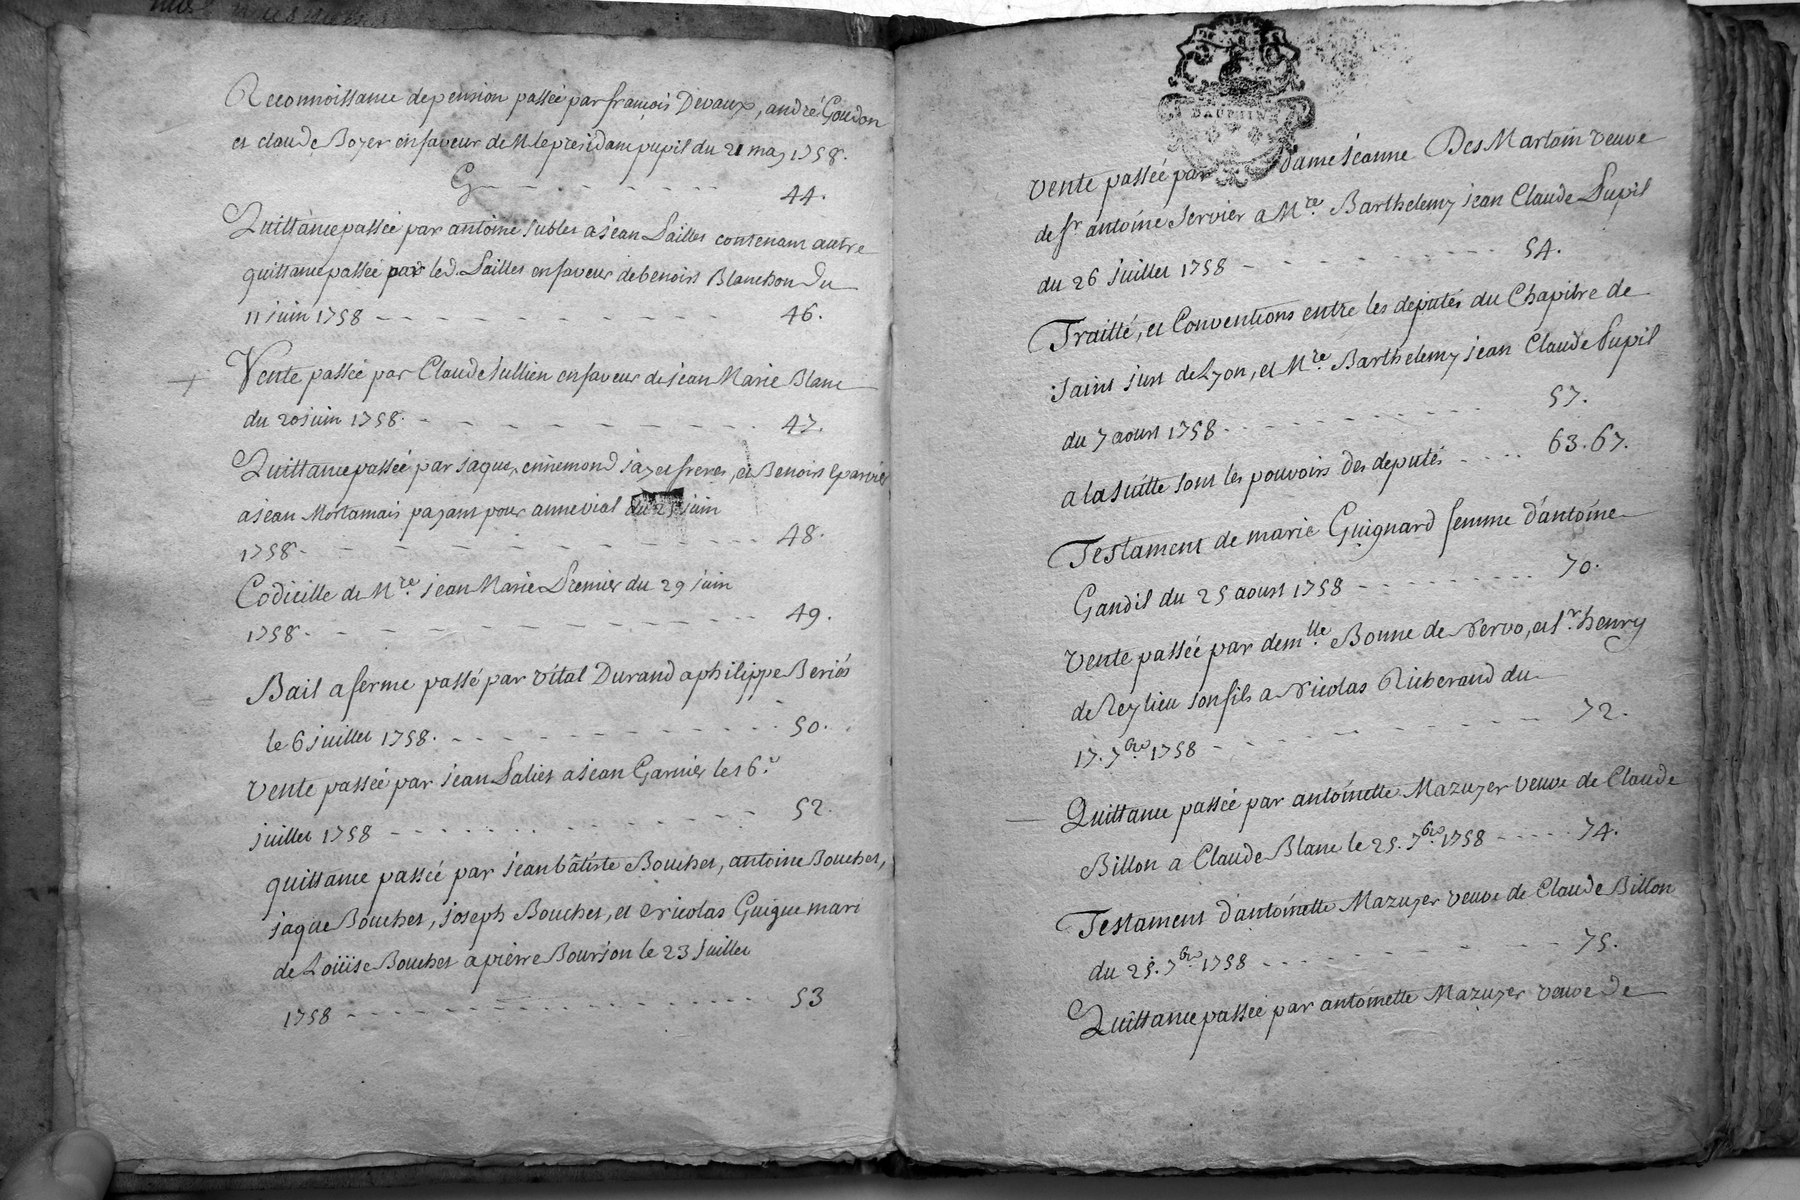 Reconnoissance de pension passée par françois Devaux, andré Goudon
et claude Boyer en faveur de M le président pupil du 21 may 1758.
44.
Quittance passée par antoine Sublet a jean Pailler contenant autre
quittance passée par led. Pailler en faveur de benoist Blanchon du
11 juin 1758 46.
Vente passée par Claude Jullien en faveur de jean Marie Blanc
du 20 juin 1758. 47.
Quittance passée par jaque, ennemond jayet freres, et Benoist Eparvier
a jean Mortamais payant pour anne vial du 25 juin
1758. 48.
Codicille de Mre. jean Marie Premier du 29 juin
1758. 49.
Bail a ferme passé par vital Durand a philippe Beriés
le 6 juillet 1758. 50.
Vente passée par jean Paliet a jean Garnier le 16.e
juillet 1758 52.
quittance passée par jean bâtiste Bouchet, antoine Bouchet,
jaque Bouchet, joseph Bouchet, et nicolas Guigue mari
de Loüise Bouchet a pierre Bourjon le 23 juillet
1758 53
DAUPHIN
Vente passée par dame jeanne Des Martoin veuve
de sr antoine Servier a Mre. Barthelemy jean Claude Pupil
du 26 juillet 1758 54.
Traitté, et Conventions entre les deputés du Chapitre de
Saint just de Lyon, et Mre. Barthelemy jean Claude Pupil
du 7 aoust 1758. 57.
a la suitte sont les pouvoirs des deputés 63. 67.
Testament de marie Guignard femme d'antoine
Gandil du 25 aoust 1758 70.
Vente passée par demlle. Bonne de Nervo, et sr. henry
de Reylieu son fils a Nicolas Richerand du
17. 7bre 1758 72.
Quittance passée par antoinette Mazuyer veuve de Claude
Billon a Claude Blanc le 25. 7bre. 1758 74.
Testament d'antoinette Mazuyer veuve de Claude Billon
du 25. 7bre. 1758 75.
Quittance passée par antoinette Mazuyer veuve de